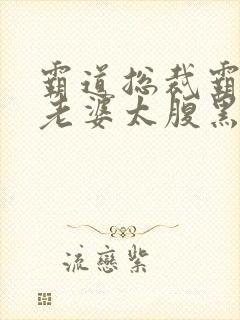 霸道总裁霸
老婆太腹黑
流恋紫